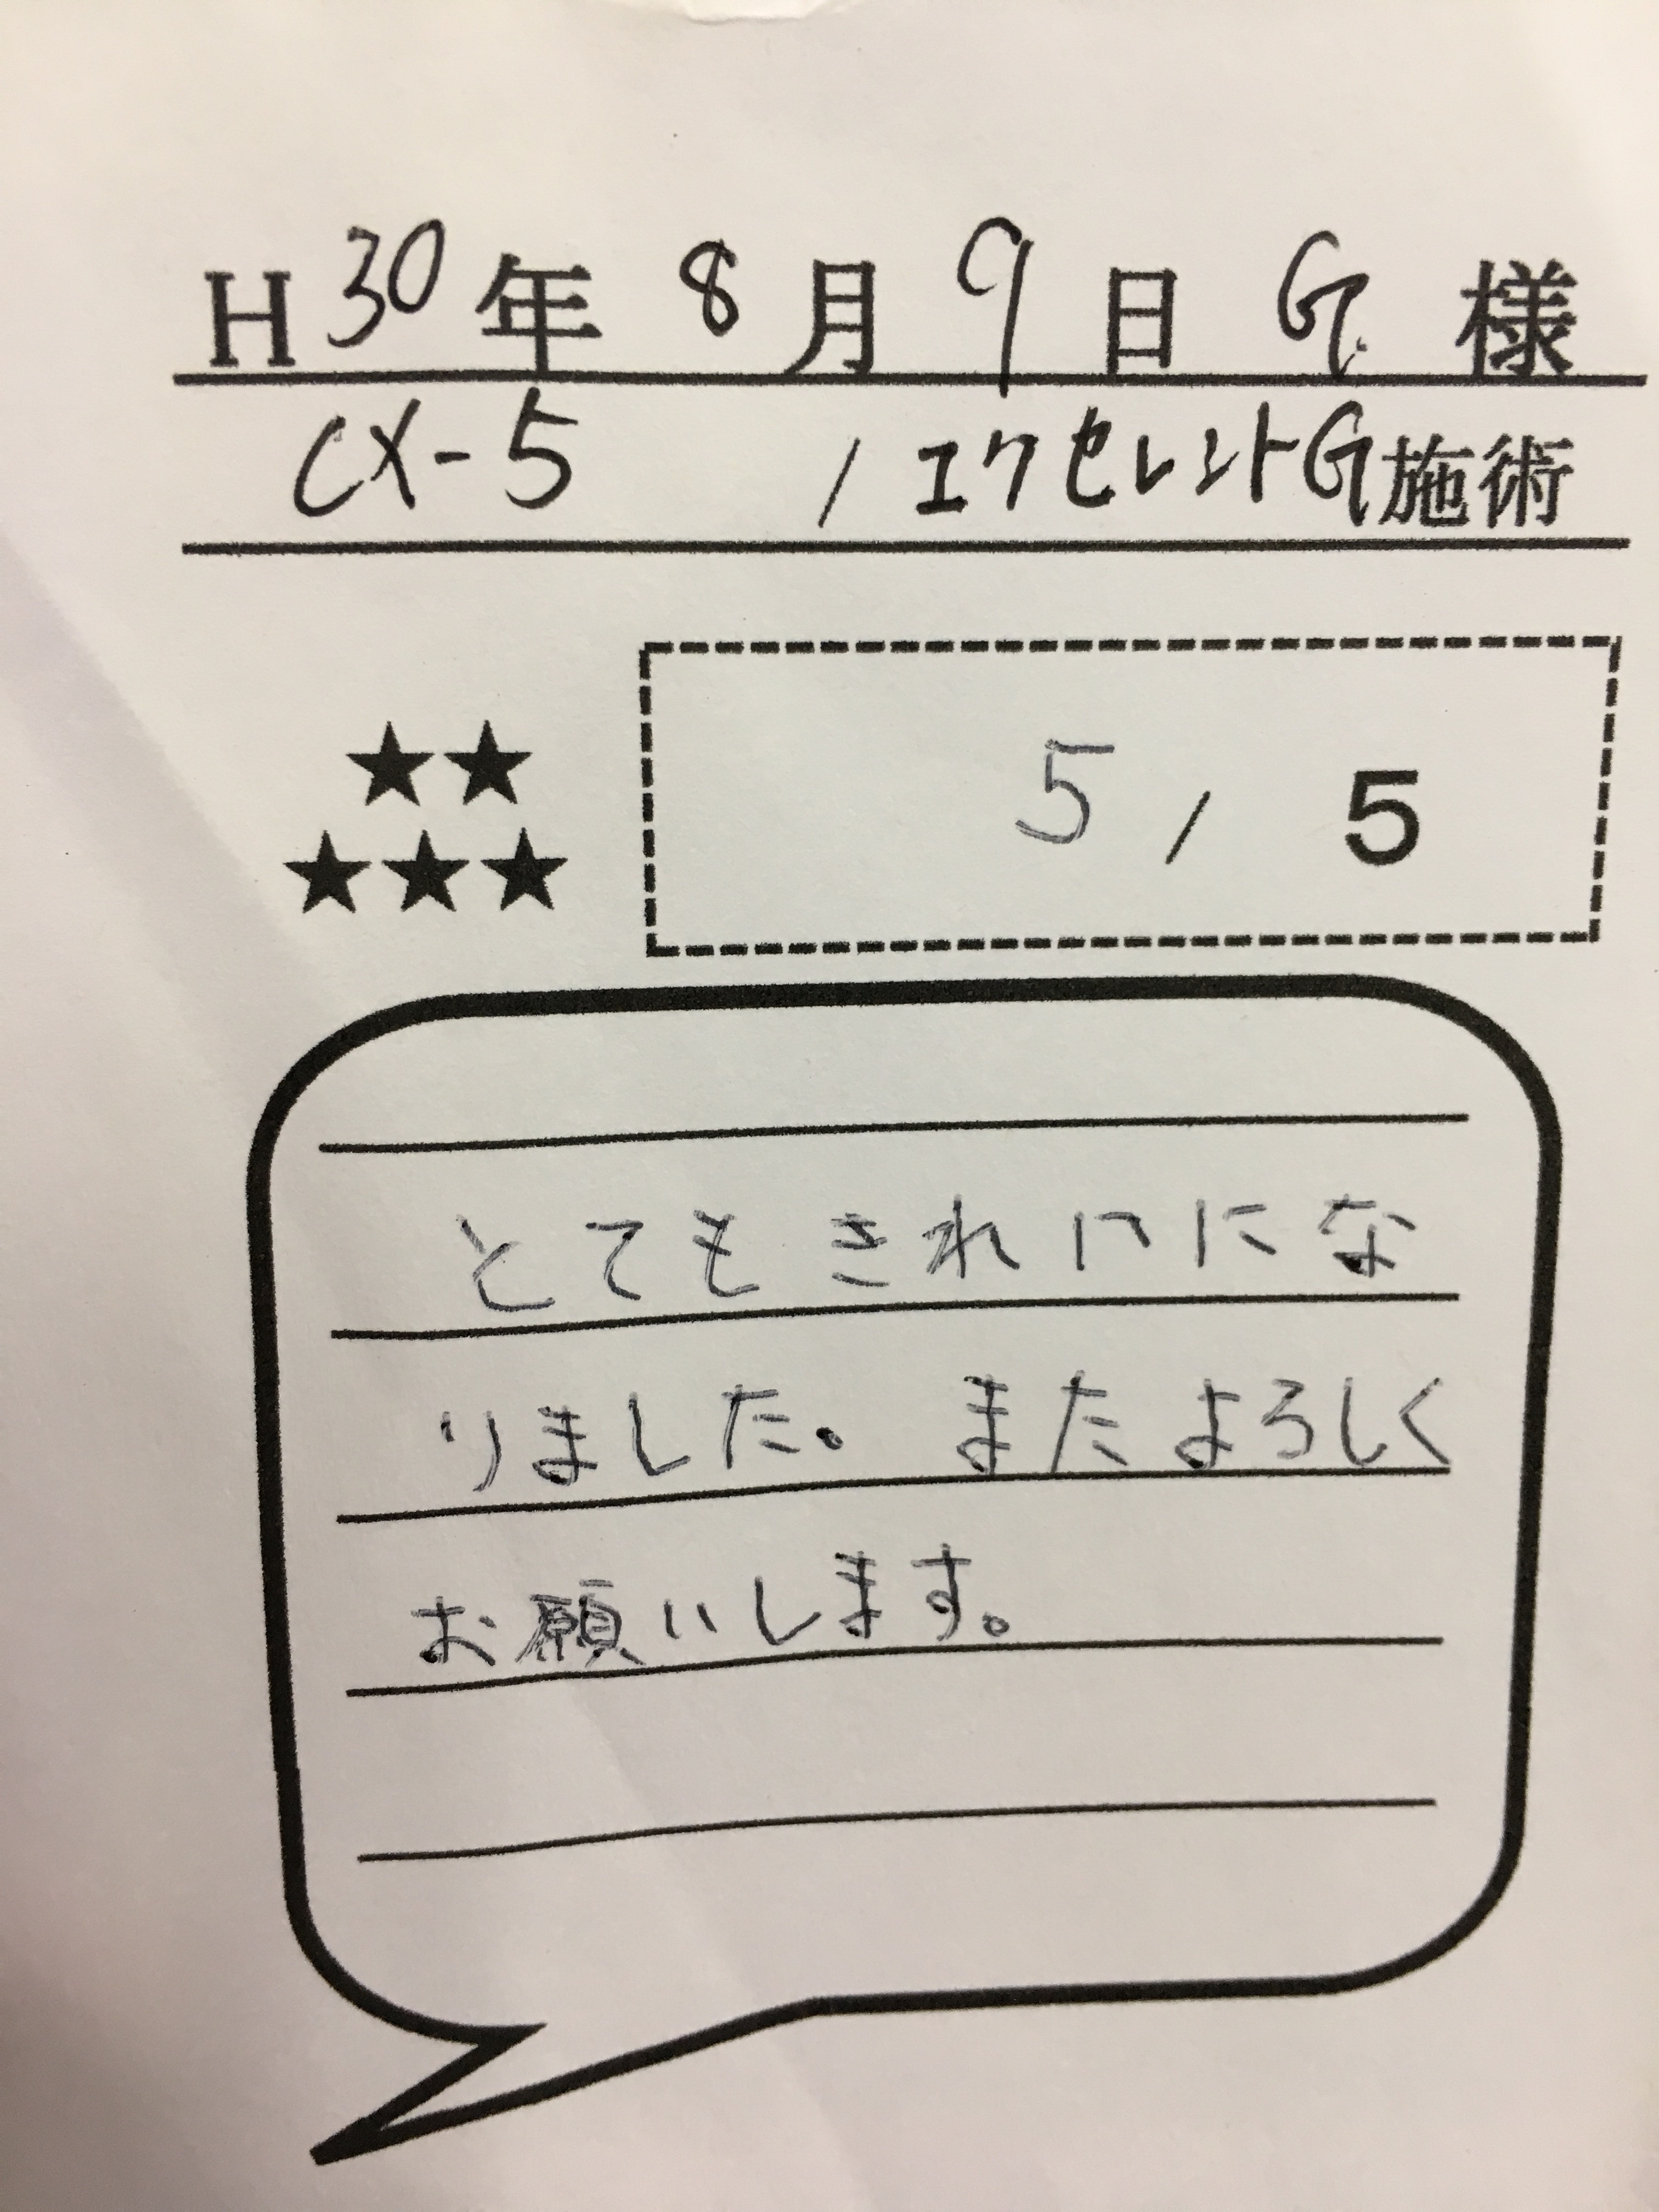 H30年 8月 9日 G. 様
CX-5 / エクセレントG施術
★★
★★★
5 / 5
とてもきれいにな
りました。またよろしく
お願いします。